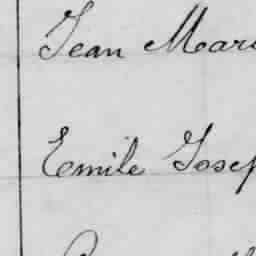 Jean Mari
Emile Josep